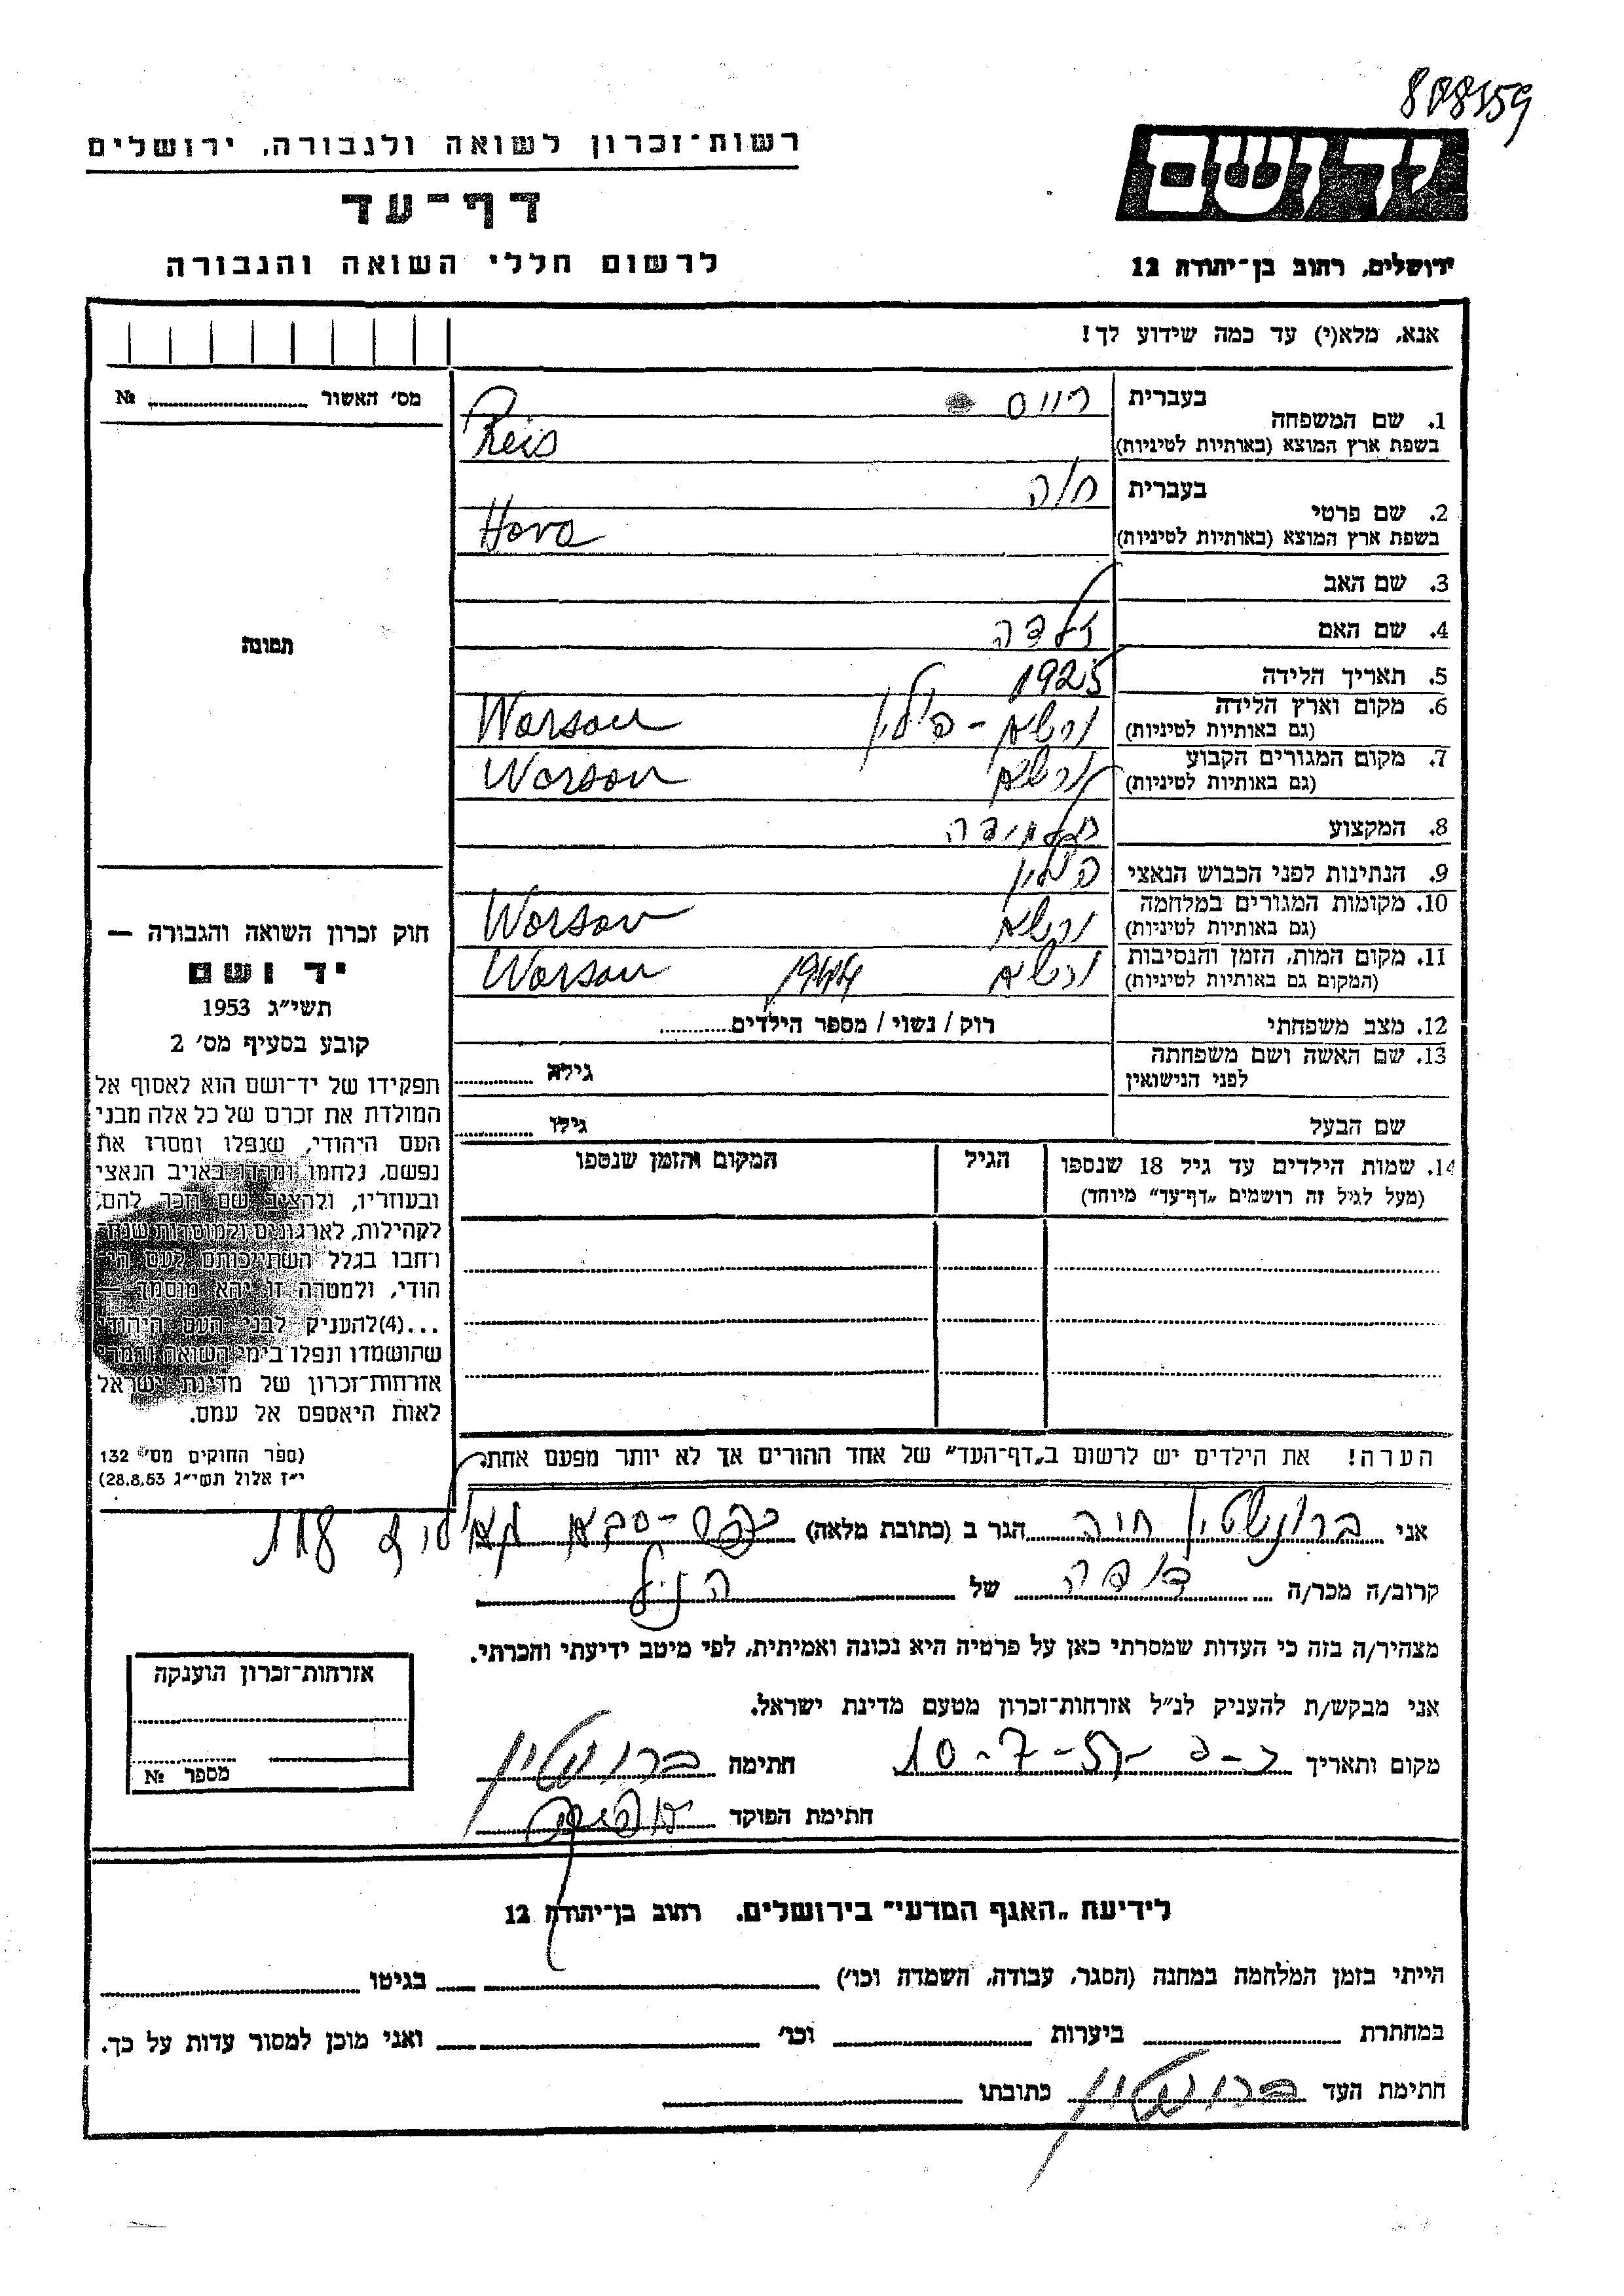 רשות־זכרון לשואה ולגבורה, ירושלים
דף־עד
לרשום חללי השואה והגבורה
יד ושם
ירושלים, רחוב בן־יהודה 12
אנא, מלא(י) עד כמה שידוע לך!
מס׳ האשור № 
תמונה
1. שם המשפחה בעברית רייס
בשפת ארץ המוצא (באותיות לטיניות) Reis
2. שם פרטי בעברית חוה
בשפת ארץ המוצא (באותיות לטיניות) Hava
3. שם האב
4. שם האם זלדה
5. תאריך הלידה 1925
6. מקום וארץ הלידה ורשא - פולין Warsaw
(גם באותיות לטיניות)
7. מקום המגורים הקבוע ורשא Warsaw
(גם באותיות לטיניות)
8. המקצוע תלמידה
9. הנתינות לפני הכבוש הנאצי פולין
10. מקומות המגורים במלחמה ורשא Warsaw
(גם באותיות לטיניות)
11. מקום המות, הזמן והנסיבות ורשא 1944 Warsaw
(המקום גם באותיות לטיניות)
12. מצב משפחתי רוק / נשוי / מספר הילדים
13. שם האשה ושם משפחתה גילה
לפני הנישואין
שם הבעל גילו
14. שמות הילדים עד גיל 18 שנספו הגיל המקום והזמן שנספו
(מעל לגיל זה רושמים „דף־עד״ מיוחד)
הערה! את הילדים יש לרשום ב„דף־העד״ של אחד ההורים אך לא יותר מפעם אחת.
חוק זכרון השואה והגבורה —
יד ושם
תשי״ג 1953
קובע בסעיף מס׳ 2
תפקידו של יד־ושם הוא לאסוף אל
המולדת את זכרם של כל אלה מבני
העם היהודי, שנפלו ומסרו את
נפשם, נלחמו ומרדו באויב הנאצי
ובעוזריו, ולהציב שם וזכר להם,
לקהילות, לארגונים ולמוסדות שנח־
רחבו בגלל השתייכותם לעם הי־
הודי, ולמטרה זו יהא מוסמך —
...(4) להעניק לבני העם היהודי
שהושמדו ונפלו בימי השואה והמרי
אזרחות־זכרון של מדינת ישראל
לאות היאספם אל עמם.
(ספר החוקים מס׳ 132
י״ז אלול תשי״ג 28.8.53)
אני ברונשטין חוה הגר ב (כתובת מלאה) כפר-סבא
קרוב/ה מכר/ה דודה של הנ״ל
מצהיר/ה בזה כי העדות שמסרתי כאן על פרטיה היא נכונה ואמיתית, לפי מיטב ידיעתי והכרתי.
אני מבקש/ת להעניק לנ״ל אזרחות־זכרון מטעם מדינת ישראל.
מקום ותאריך 10-7-57 חתימה ברונשטין
חתימת הפוקד
אזרחות־זכרון הוענקה
מספר №
לידיעת „האגף המדעי״ בירושלים, רחוב בן־יהודה 12
הייתי בזמן המלחמה במחנה (הסגר, עבודה, השמדה וכו׳) בגיטו
במחתרת ביערות וכו׳ ואני מוכן למסור עדות על כך.
חתימת העד ברונשטין כתובתו